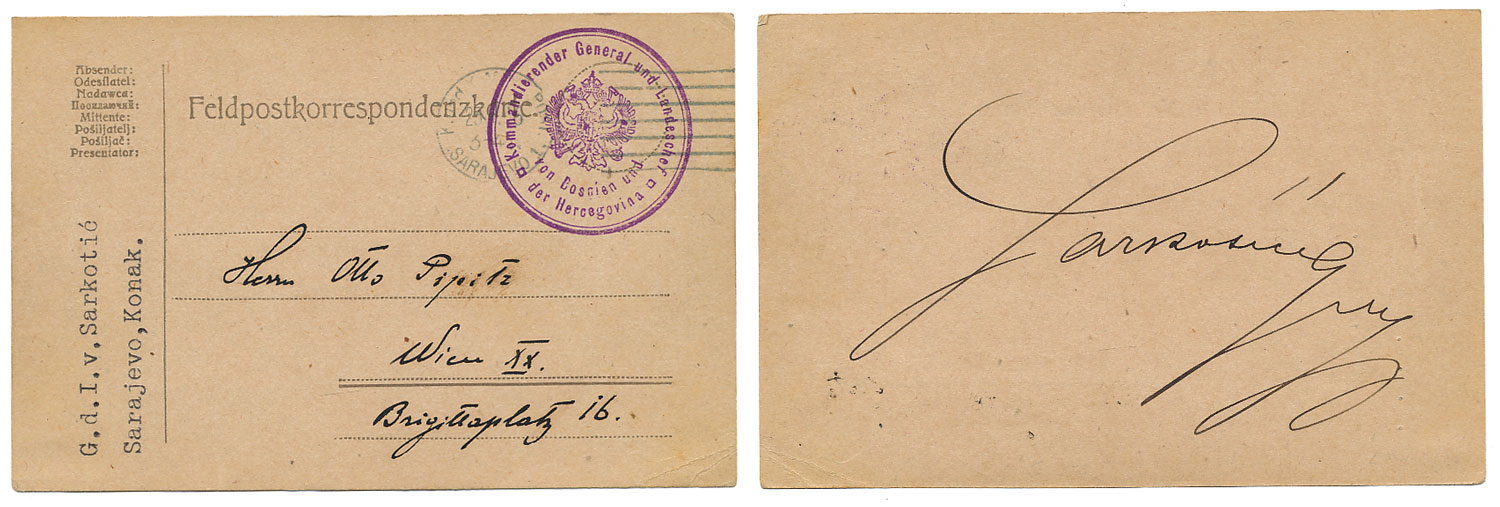 Absender:
Odesílatel:
Nadawca:
Посилаючий:
Mittente:
Pošiljatelj:
Pošiljač:
Presentator:
Feldpostkorrespondenzkarte.
SARAJEVO 1
Kommandierender General und Landeschef
von Bosnien und
der Hercegovina
G.d.I.v.Sarkotić
Sarajevo,Konak.
Herrn Otto Pipitz
Wien XX.
Brigittaplatz 16.
Sarkotić